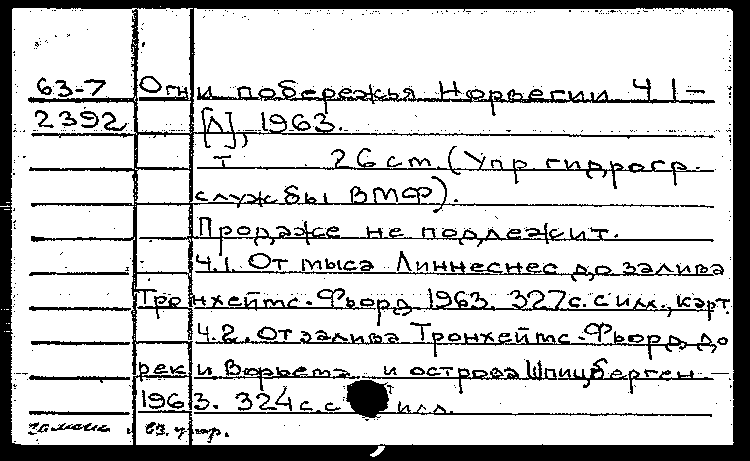 63-7 Огни побережья Норвегии Ч 1-
2392 [Л], 1963.
т 26 см. (Упр гидрогр.
службы ВМФ).
Продаже не подлежит.
Ч.1. От мыса Линнеснес до залива
Тронхеймс-Фьорд 1963. 327с. с илл., карт.
Ч.2. От залива Тронхеймс-Фьорд до
реки Ворьема и острова Шпицберген
1963. 324 с. с илл.